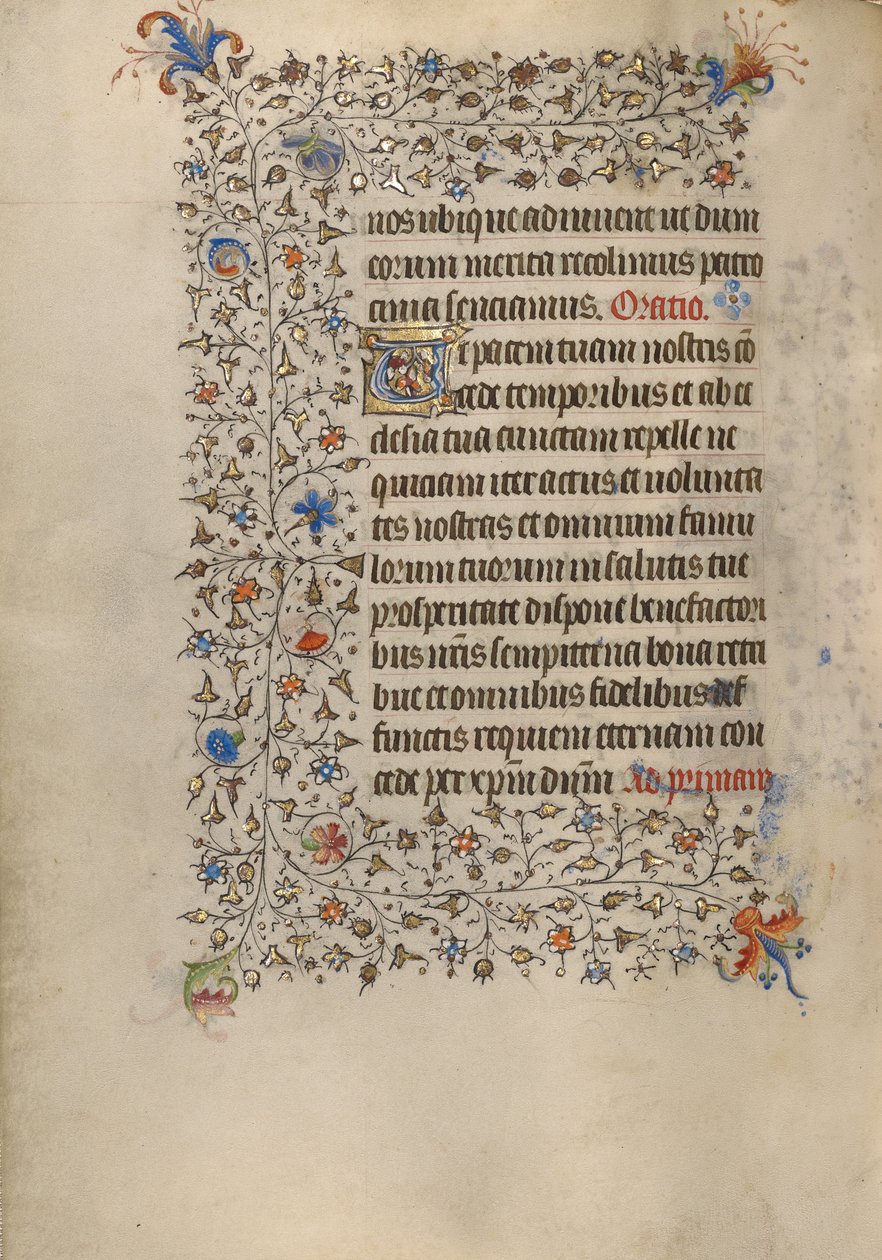 nos ubique adiuuent ut dum
eorum merita recolimus patro
cinia senciamus. Oratio.
Et pacem tuam nostris cō
cede temporibus et ab ec
clesia tua cunctam repelle ne
quiciam iter actus et uolunta
tes nostras et omnium famu
lorum tuorum in salutis tue
prosperitate dispone benefactori
bus nr̄is sempiterna bona retri
bue et omnibus fidelibus def
functis requiem eternam con
cede per xp̄m dn̄m Ad primam